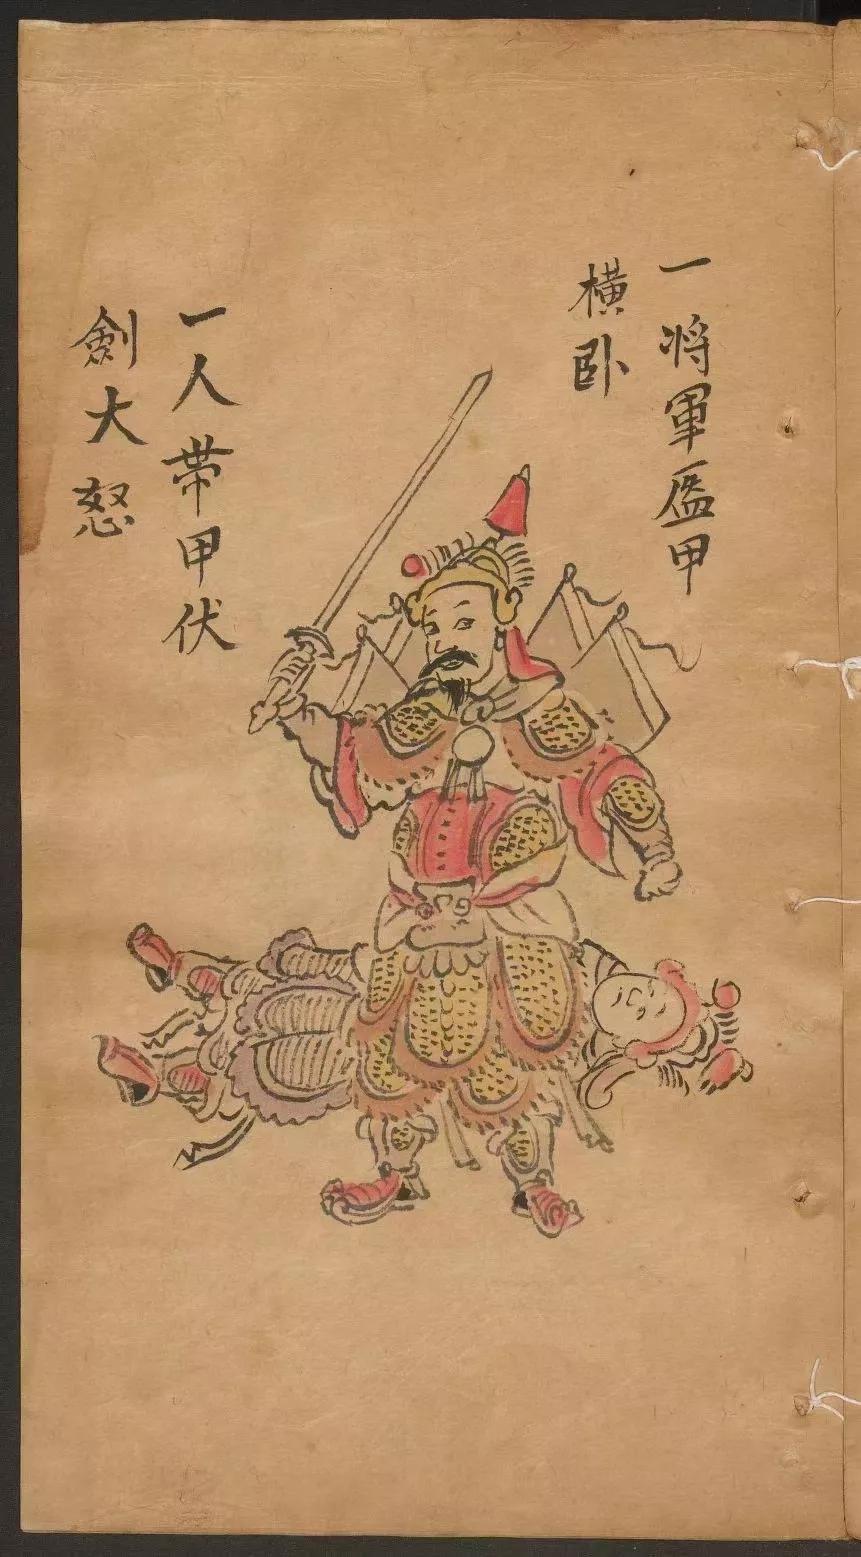 一将軍盔甲
橫卧
一人帶甲伏
劍大怒